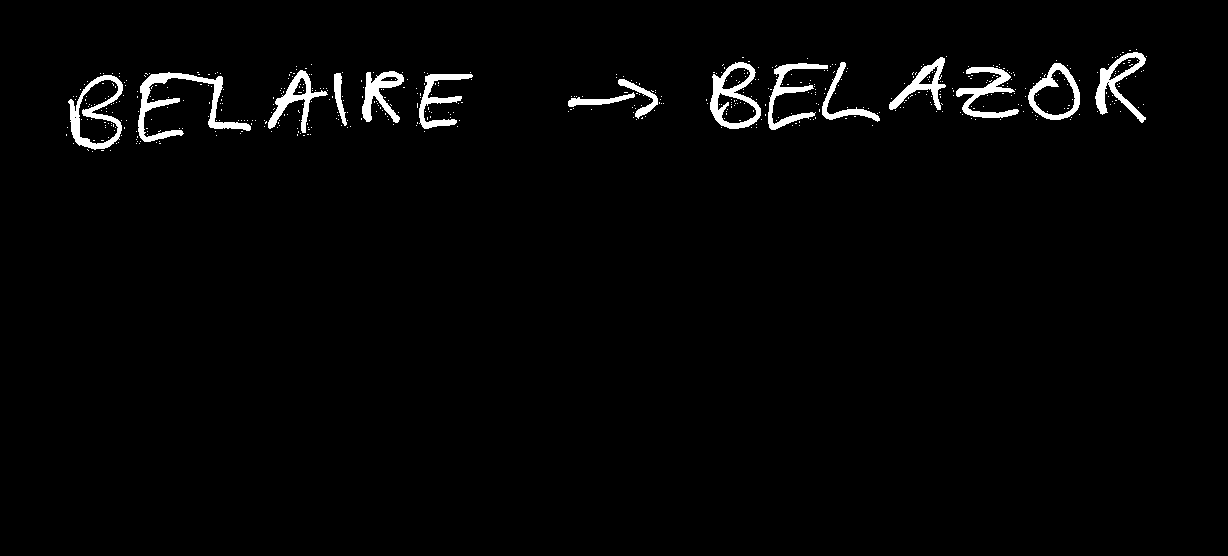 BELAIRE → BELAZOR